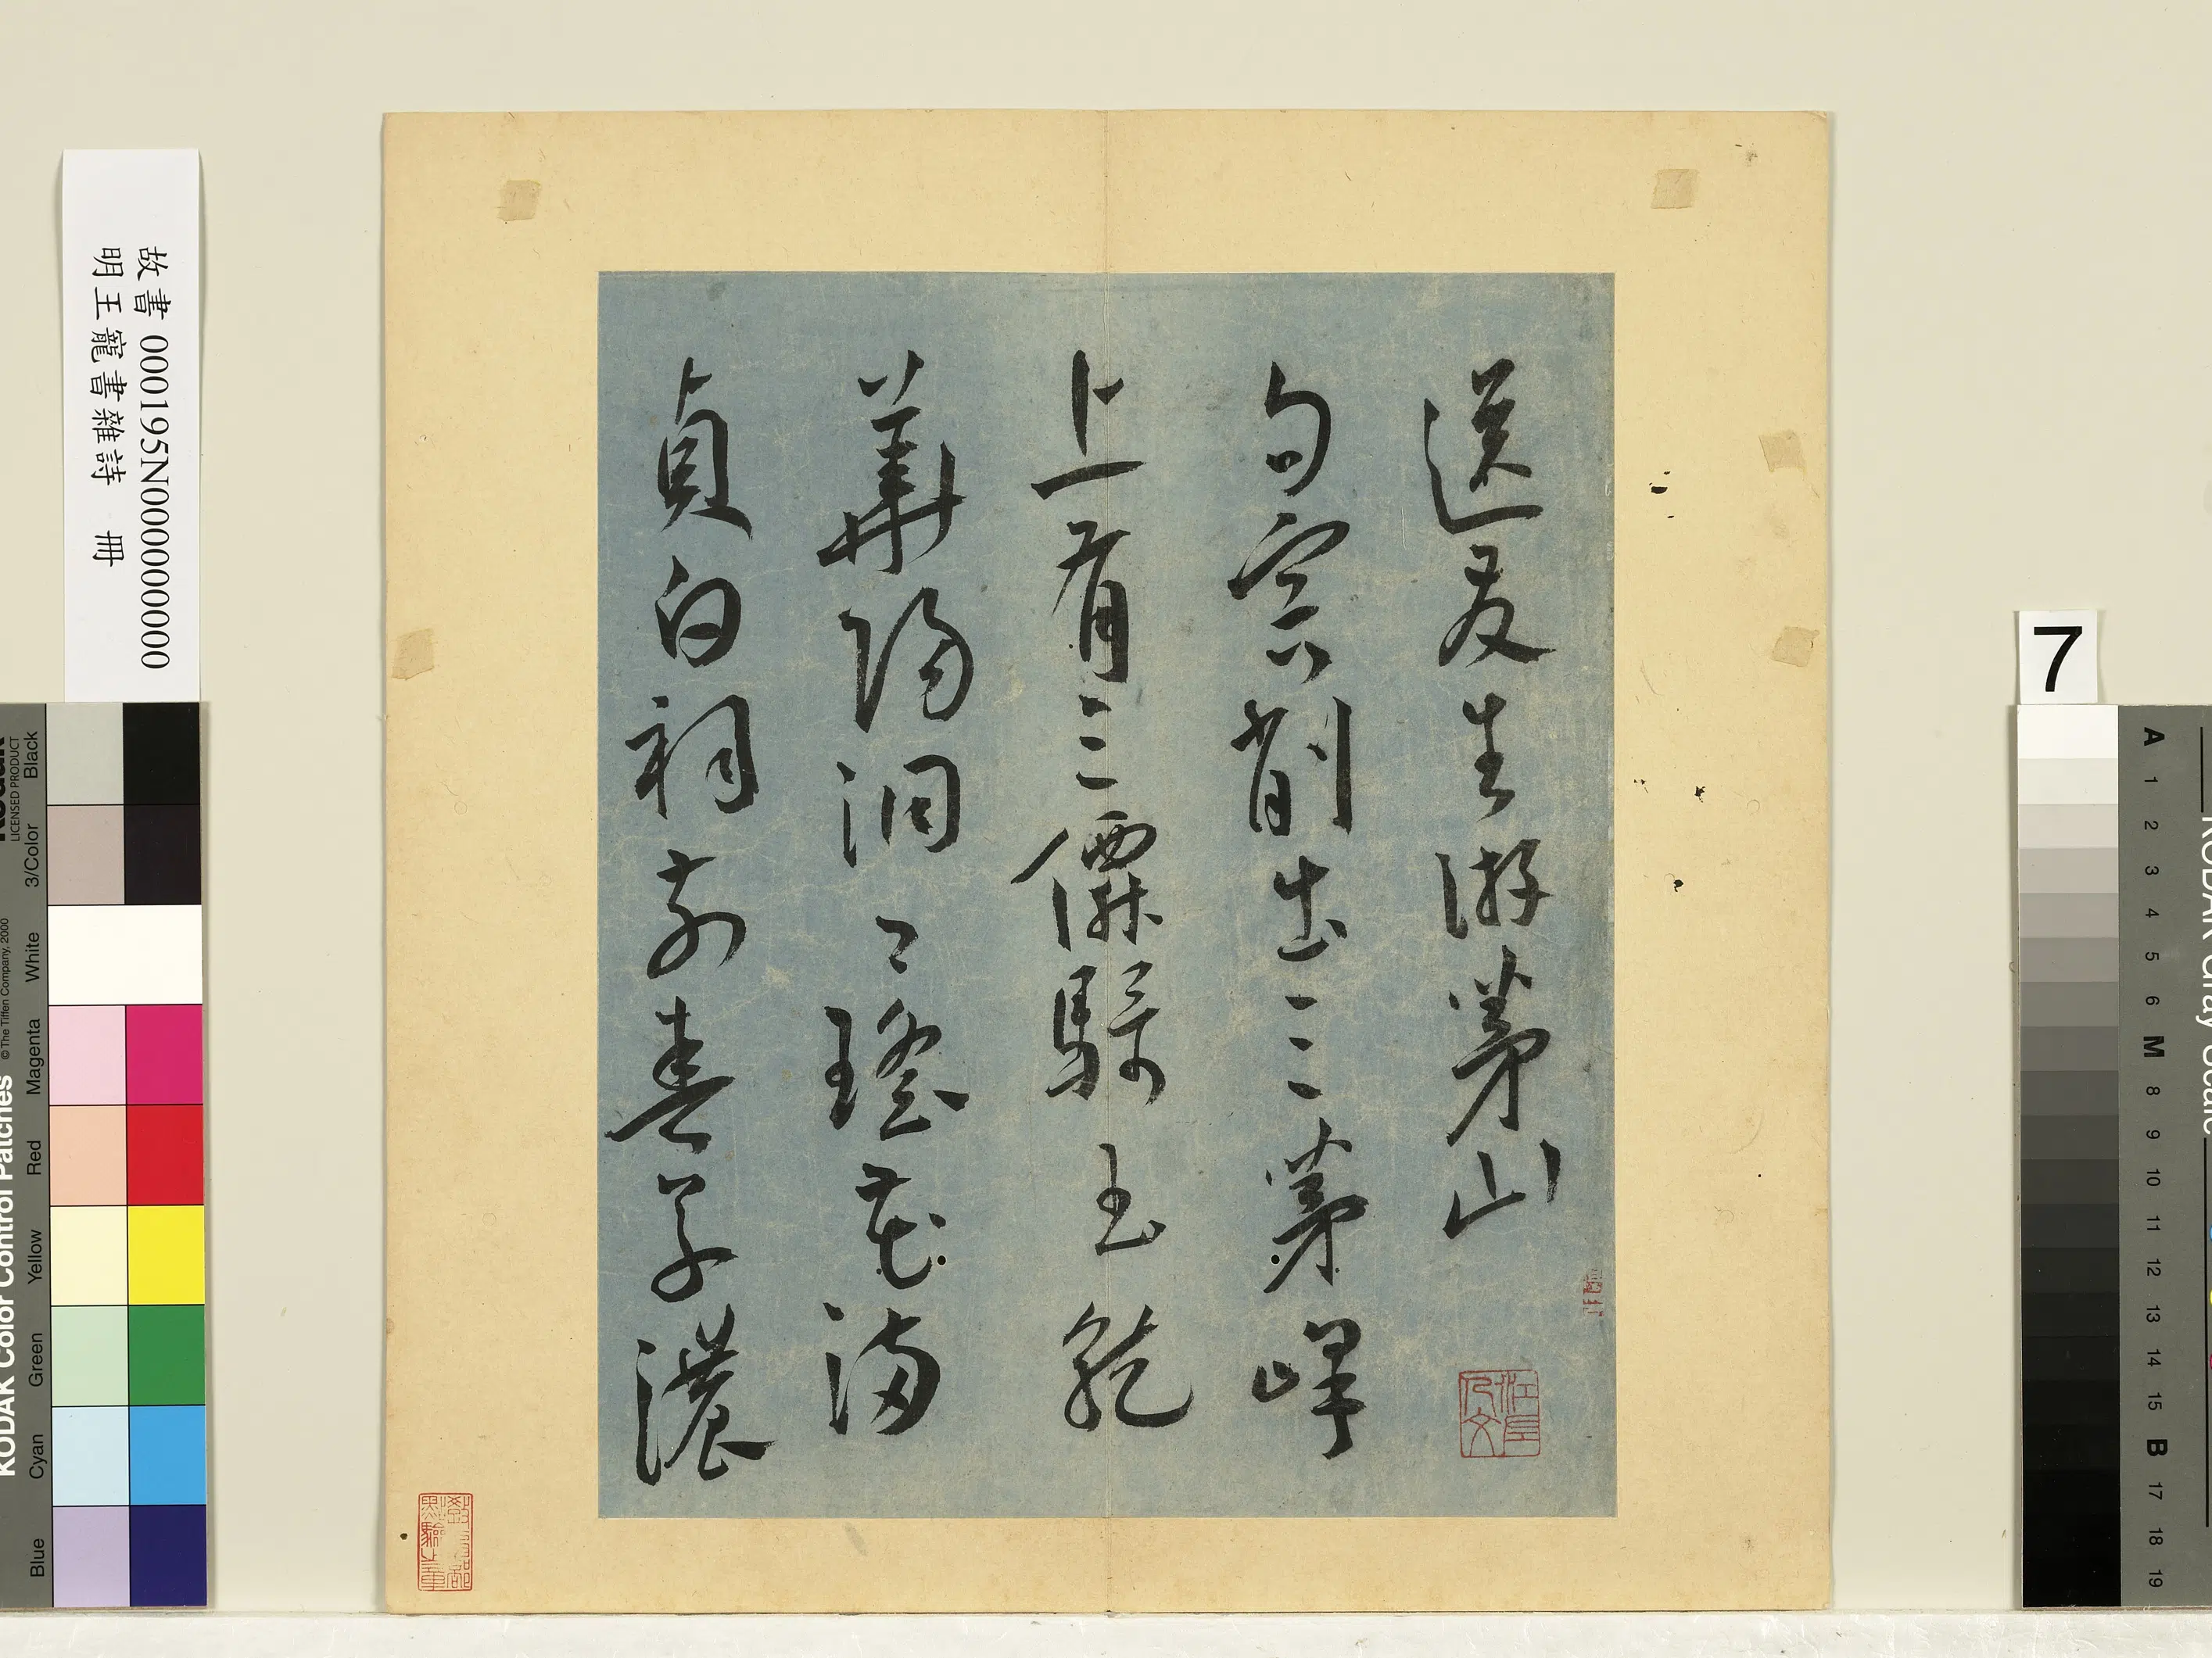 送友生游茅山
句容削出三茅峰
上有三僊騎玉龍
華陽洞口瑤花滿
貞白祠前春草濃
教育部點驗之章
故書 000195N000000000
明王寵書雜詩 冊
7
KODAK Color Control Patches
© The Tiffen Company, 2000
LICENSED PRODUCT
Blue
Cyan
Green
Yellow
Red
Magenta
White
3/Color
Black
KODAK Gray Scale
A
1
2
3
4
5
6
M
8
9
10
11
12
13
14
15
B
17
18
19